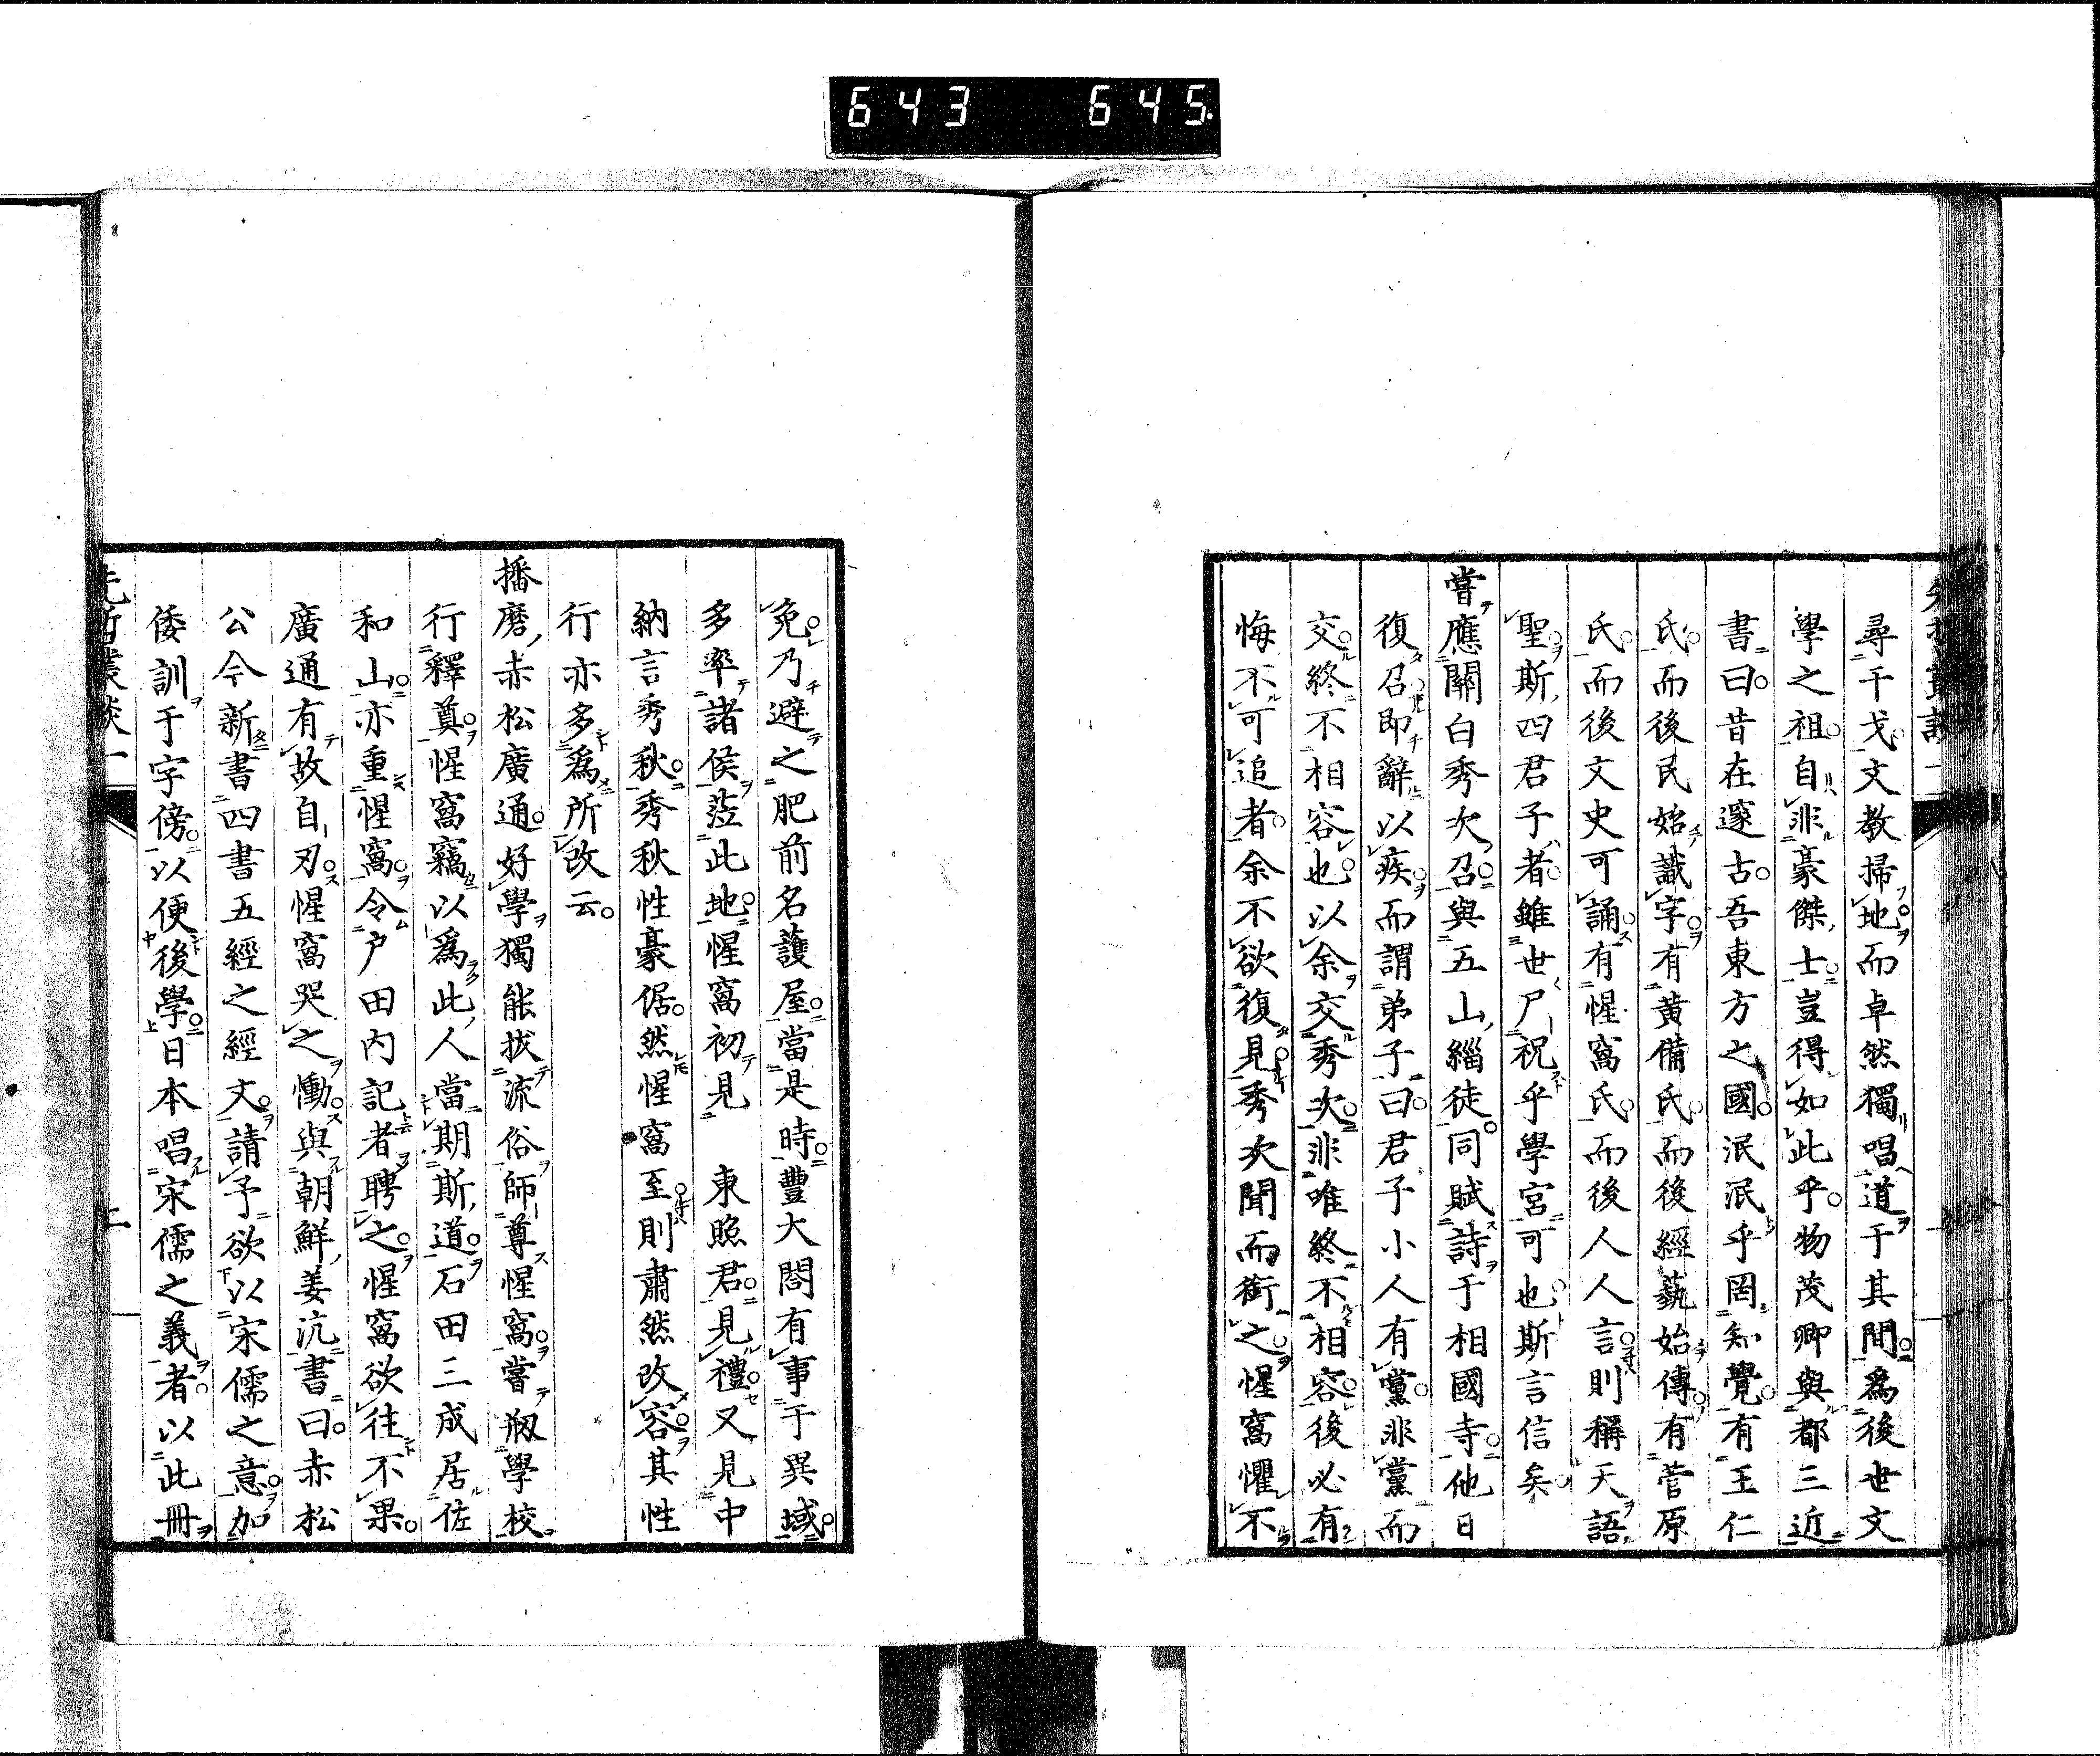 643 645
尋干戈文教掃地而卓然獨唱道于其間爲後世文
學之祖自非豪傑士豈得如此乎物茂卿與都三近
書曰昔在邃古吾東方之國泯泯乎罔知覺有王仁
氏而後民始識字有黄備氏而後經藝始傳有菅原
氏而後文史可誦有惺窩氏而後人人言則稱天語
聖斯四君子者雖世尸祝乎學宮可也斯言信矣
嘗應關白秀次召與五山緇徒同賦詩于相國寺他日
復召即辭以疾而謂弟子曰君子小人有黨非黨而
交終不相容也以余交秀次非唯終不相容後必有
悔不可追者余不欲復見秀次聞而銜之惺窩懼不
免乃避之肥前名護屋當是時豐大閤有事于異域
多率諸侯蒞此地惺窩初見　東照君見禮又見中
納言秀秋秀秋性豪倨然惺窩至則肅然改容其性
行亦多爲所改云
播磨赤松廣通好學獨能拔流俗師尊惺窩嘗剏學校
行釋奠惺窩竊以爲此人當期斯道石田三成居佐
和山亦重惺窩令户田内記者聘之惺窩欲往不果
廣通有故自刃惺窩哭之慟與朝鮮姜沆書曰赤松
公今新書四書五經之經文請予欲以宋儒之意加
倭訓于字傍以便後學日本唱宋儒之義者以此冊
先哲叢談一